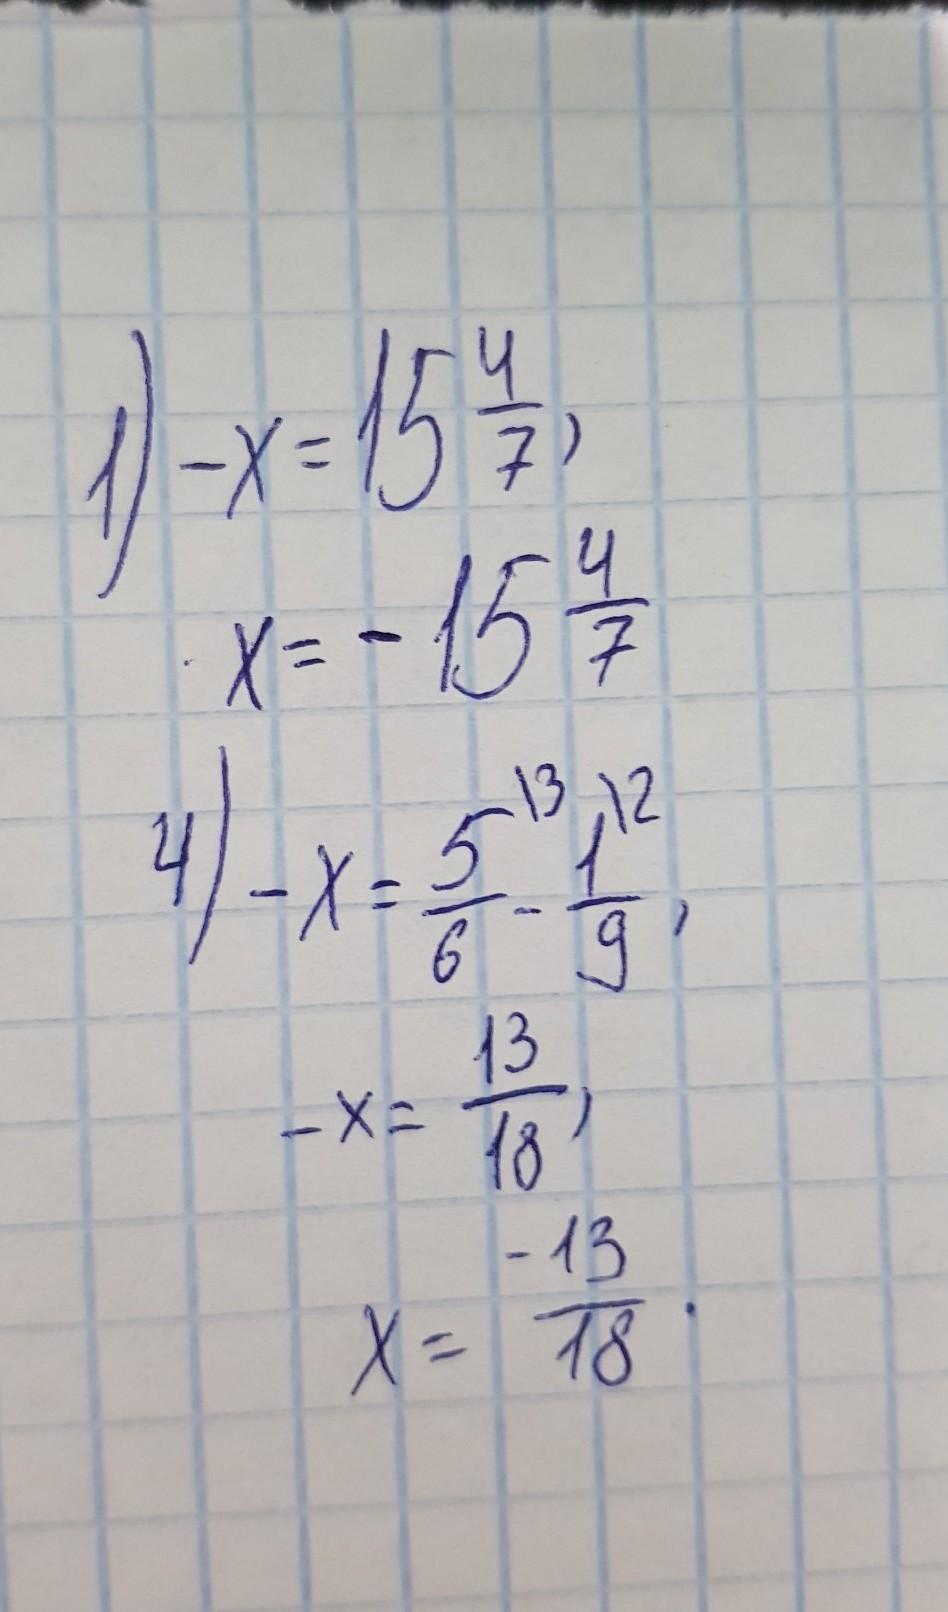 1) -x = 15 4/7,
x = - 15 4/7
4) -x = 5/6 \3 - 1/9 \2,
-x = 13/18,
x = -13/18.